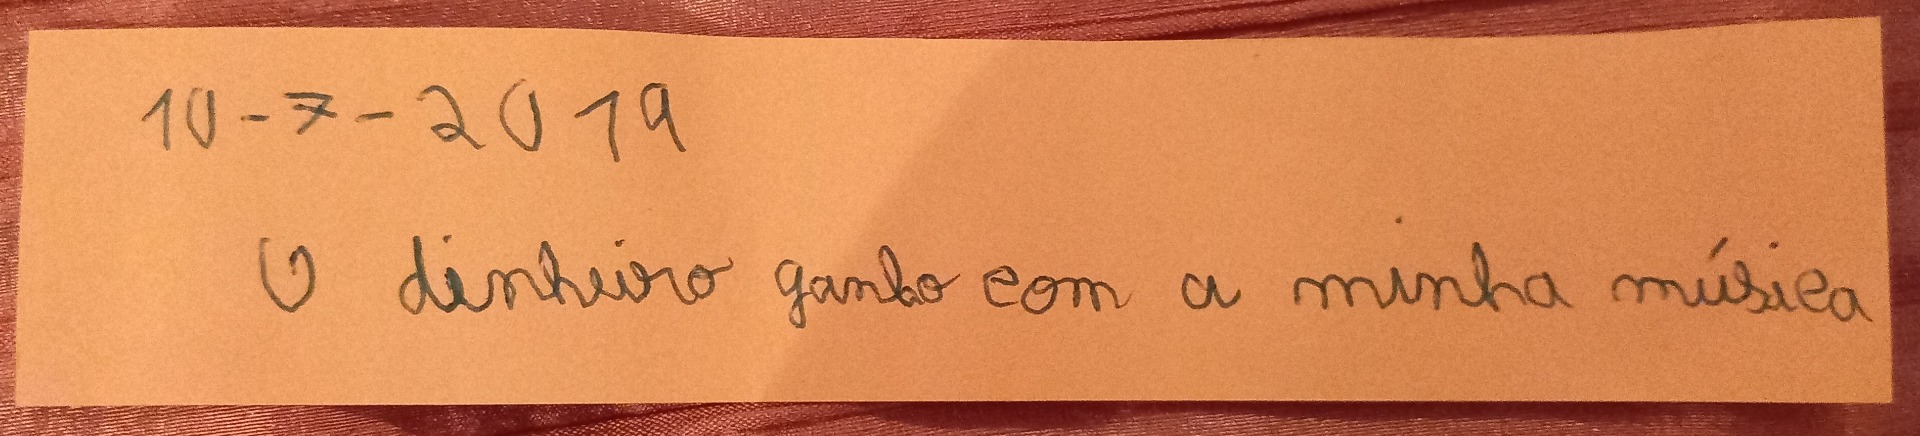 10-7-2019
O dinheiro ganho com a minha música